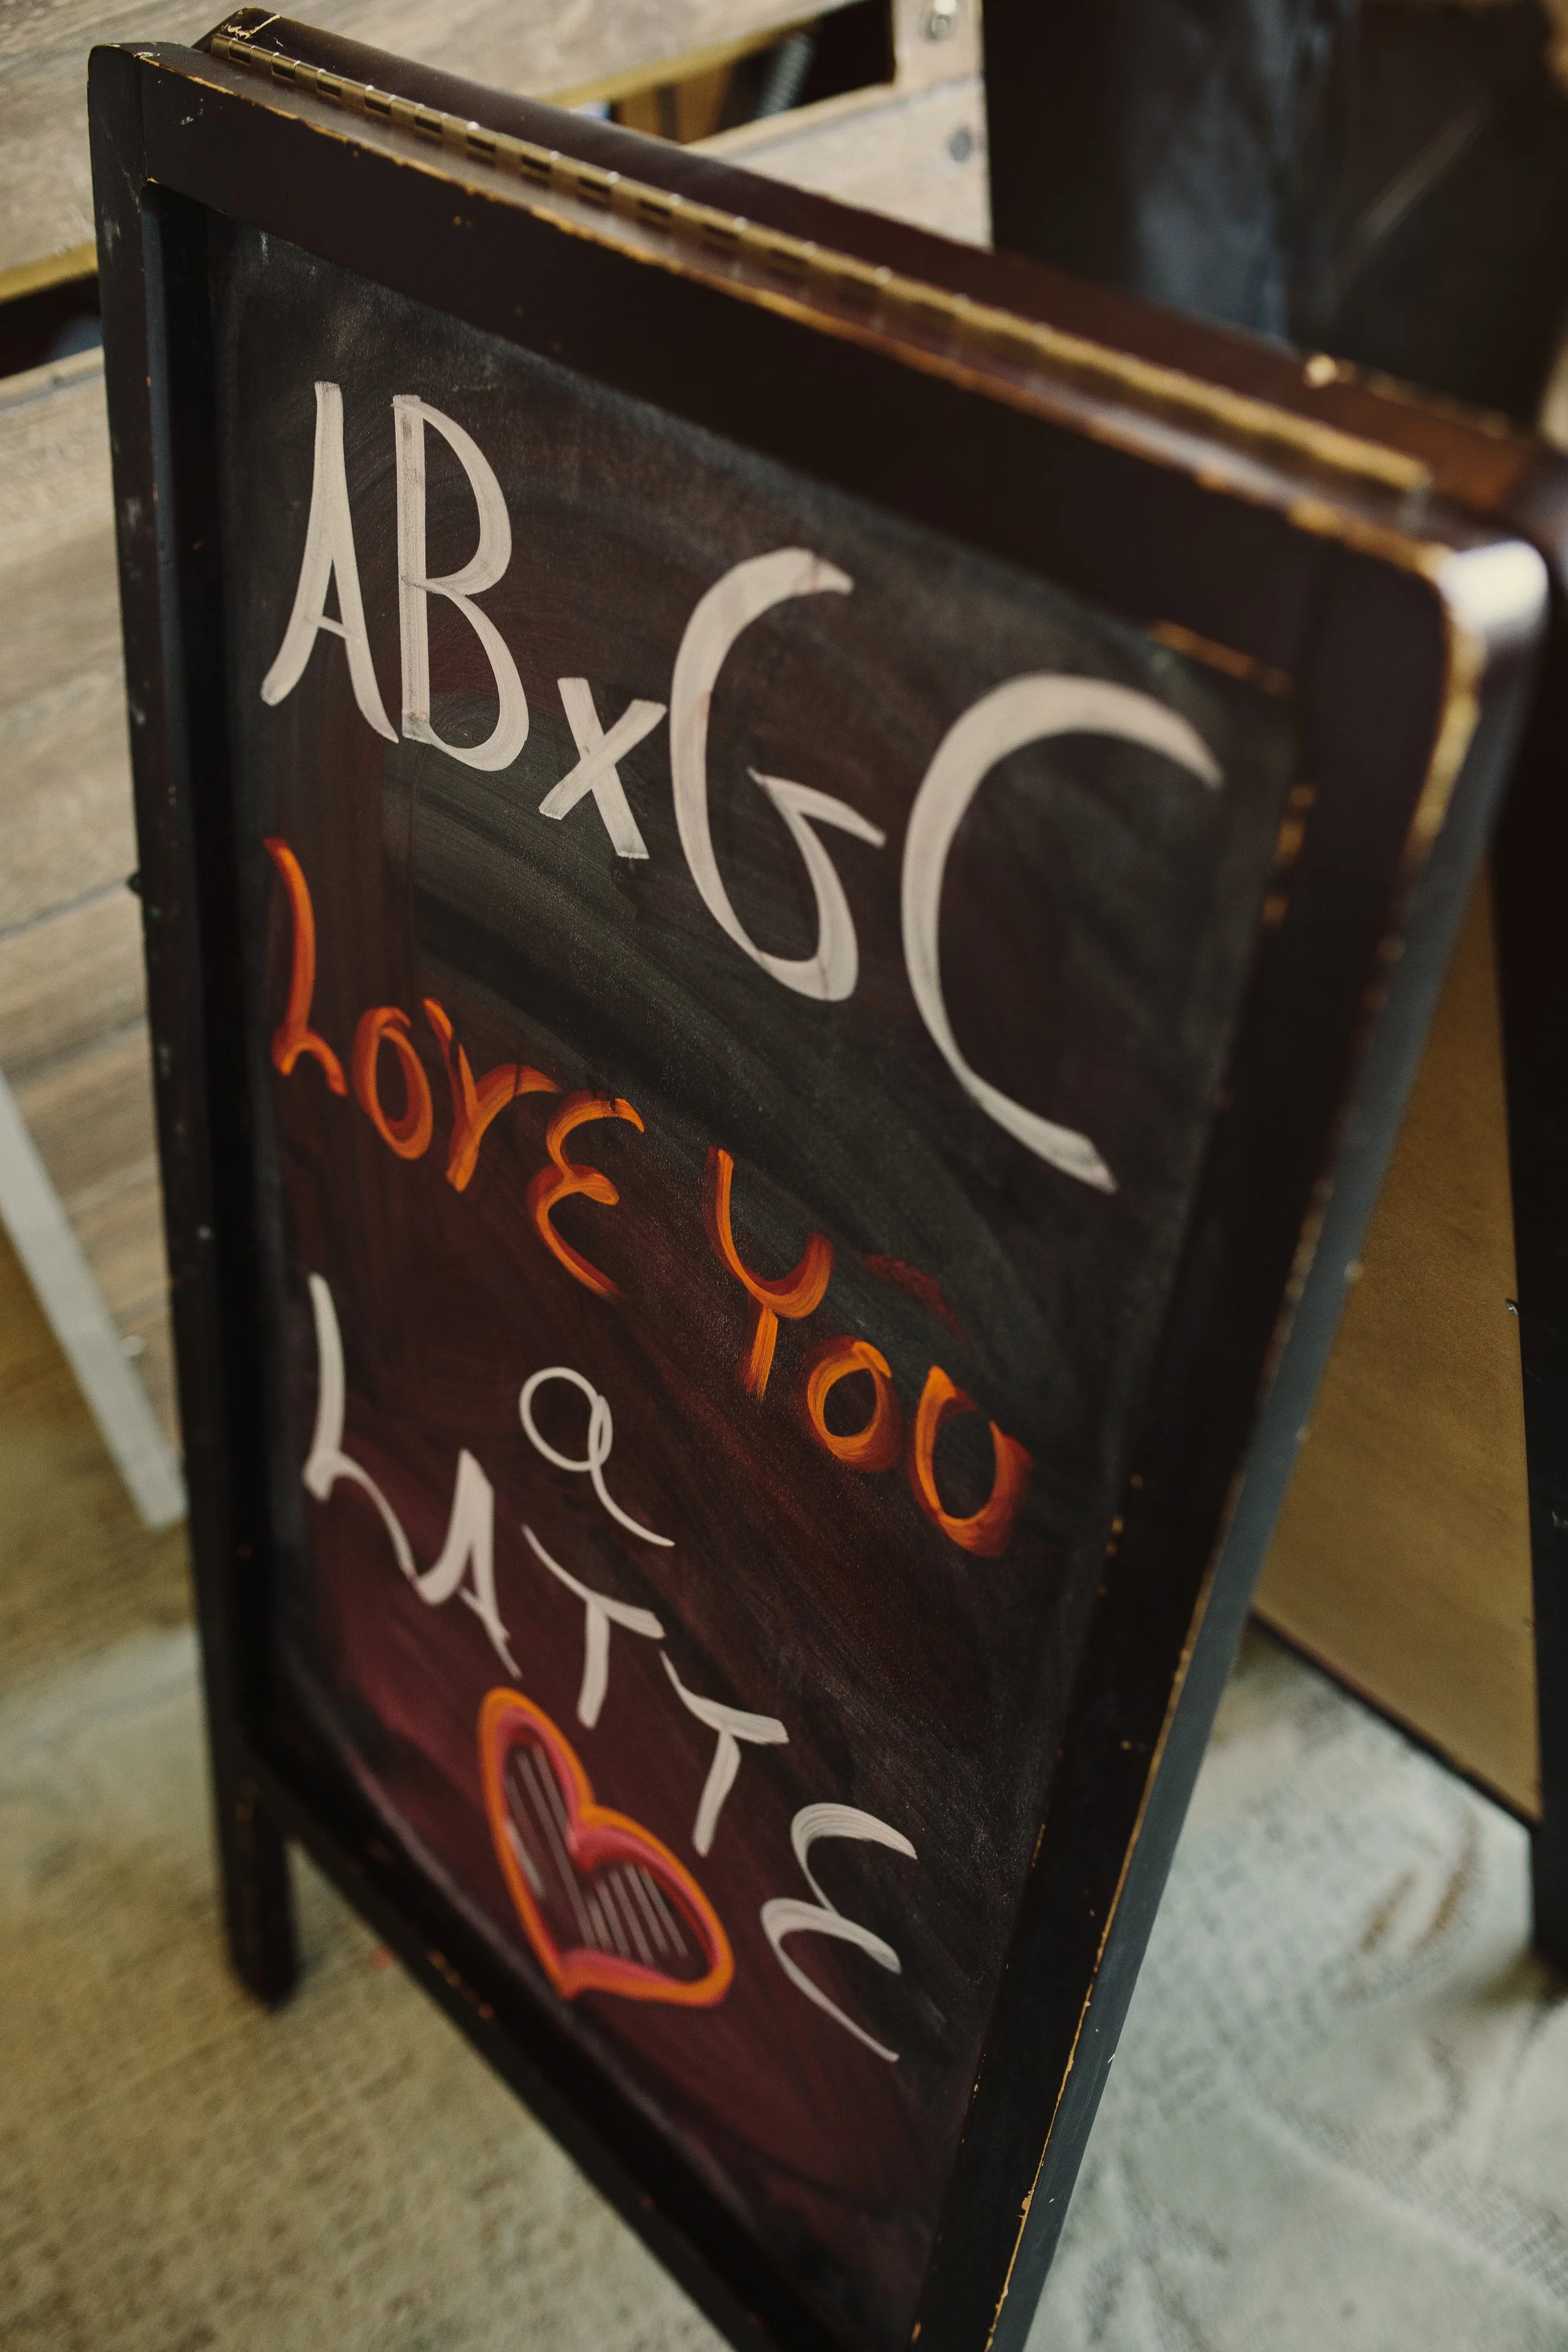 ABxGC
LOVE YOU
a
LATTE